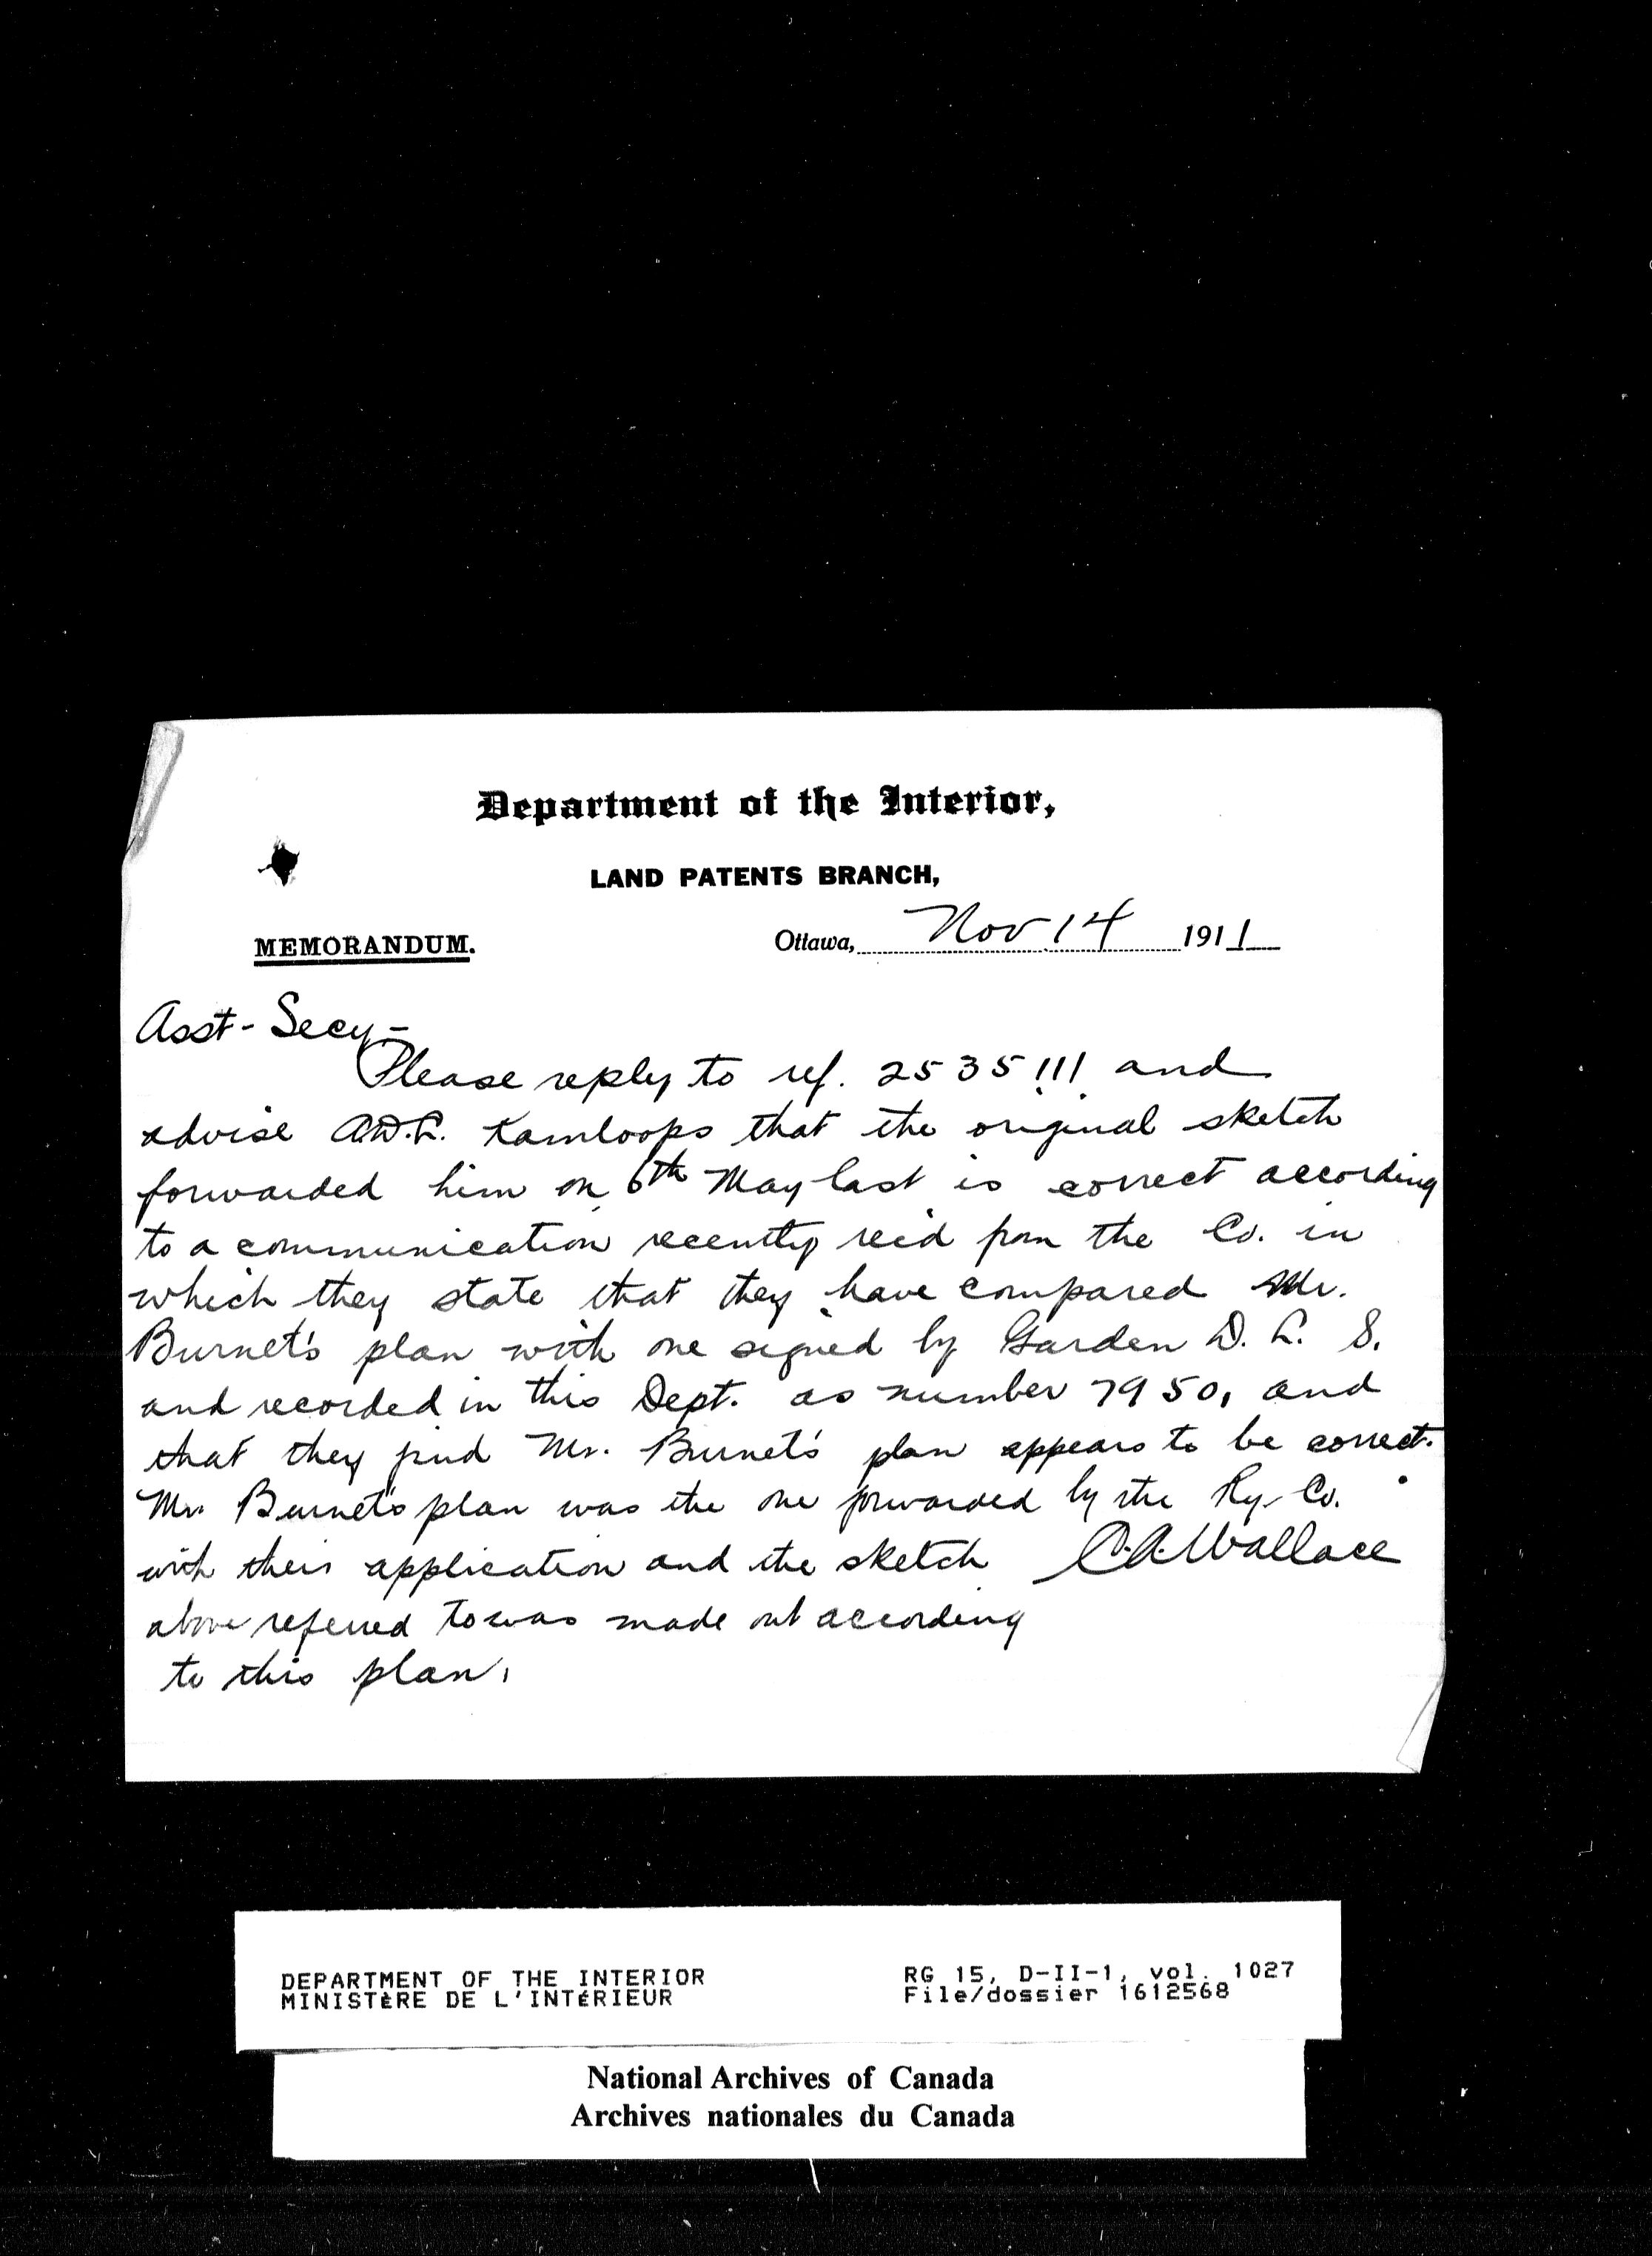 Department of the Interior,
LAND PATENTS BRANCH,
MEMORANDUM. Ottawa, Nov 14 1911
Asst- Secy-
Please reply to ref. 2535!!! and
advise A.D.L. Kamloops that the original sketch
forwarded him on 6th May last is correct according
to a communication recently rec'd from the Co. in
which they state that they have compared Mr.
Burnet's plan with one signed by Garden D. L. S.
and recorded in this Dept. as number 7950, and
that they find Mr. Burnet's plan appears to be correct.
Mr. Burnet's plan was the one forwarded by the Ry. Co.
with their application and the sketch C.A. Wallace
above referred to was made out according
to this plan.
DEPARTMENT OF THE INTERIOR RG 15, D-II-1, vol. 1027
MINISTÈRE DE L'INTÉRIEUR File/dossier 1612568
National Archives of Canada
Archives nationales du Canada